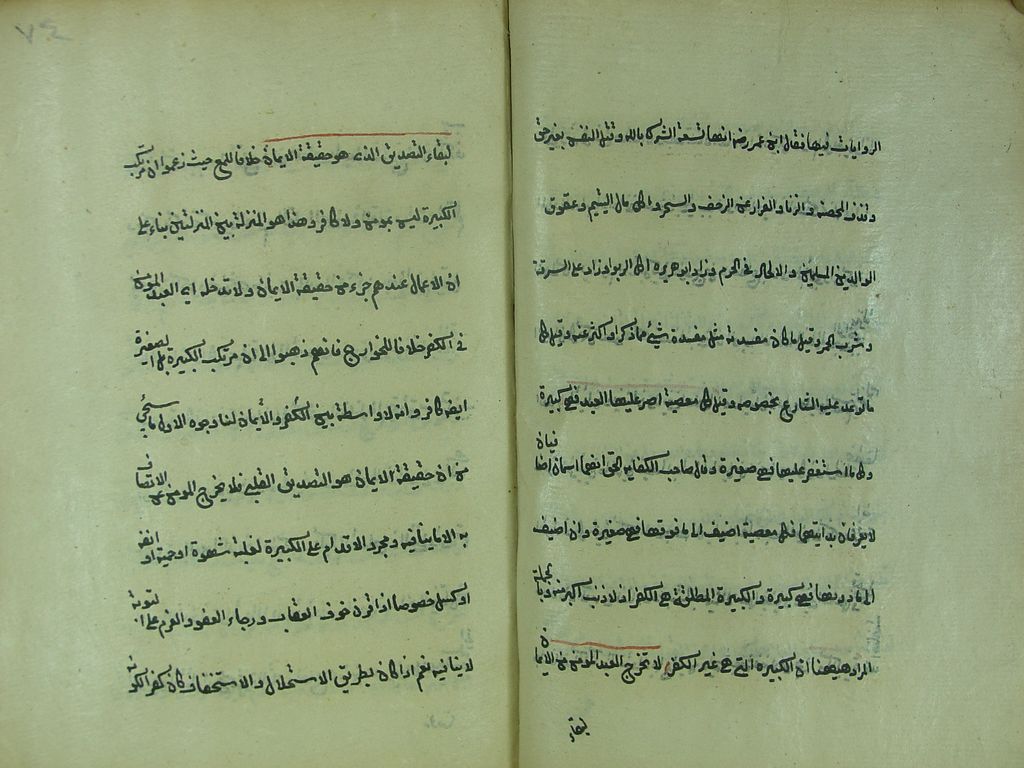 الروايات فيها فقال ابن عمر رضه انها تسعة الشرك بالله وقتل النفس بغير حق
وقذف المحصنة والزنا والفرار عن الزحف والسحر واكل مال اليتيم وعقوق
الوالدين المسلمين والالحاد في الحرم وزاد ابو هريرة اكل الربوا وزاد على السرقة
وشرب الخمر وقيل ما كان مفسدته مثل مفسدة شيء مما ذكر او اكثر عنه وقيل كل
ما توعد عليه الشارع بخصوصه وقيل كل معصية اصر عليها العبد فهي كبيرة
وكل ما استغفر عليها فهي صغيرة وقال صاحب الكفاية الحق انهما اسمان اضافيان
لا يعرفان بذاتيهما فكل معصية اضيف الى ما فوقها فهي صغيرة وان اضيف
الى ما دونها فهي كبيرة والكبيرة المطلقة هي الكفر اذ لا ذنب اكبر منه وبالجملة
المراد هيهنا ان الكبيرة التي هي غير الكفر لا تخرج العبد المومن من الايمان
لبقاء
٧٤
لبقاء التصديق الذي هو حقيقة الايمان خلافا للمع حيث زعموا ان مرتكب
الكبيرة ليس بمومن ولا كافر وهذا هو المنزلة بين المنزلتين بناء على
ان الاعمال عندهم جزء من حقيقة الايمان ولا تدخله اي العبد المومن
في الكفر خلافا للخوارج فانهم ذهبوا الى ان مرتكب الكبيرة بل الصغيرة
ايضه كافر وانه لا واسطة بين الكفر والايمان لنا وجوه الاول ما سيجئ
من ان حقيقة الايمان هو التصديق القلبي فلا يخرج المومن عن الاتصاف
به الا بما ينافيه ومجرد الاقدام على الكبيرة لغلبة شهوة او حمية او انفة
او كسل خصوصا اذا قرن خوف العقاب ورجاء العفو والعزم على التوبة
لا ينافيه نعم اذا كان بطريق الاستحلال والاستخفاف كان كفر الكونه